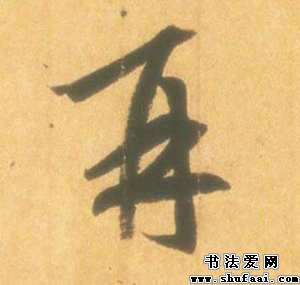 再
书法爱网
www.shufaai.com